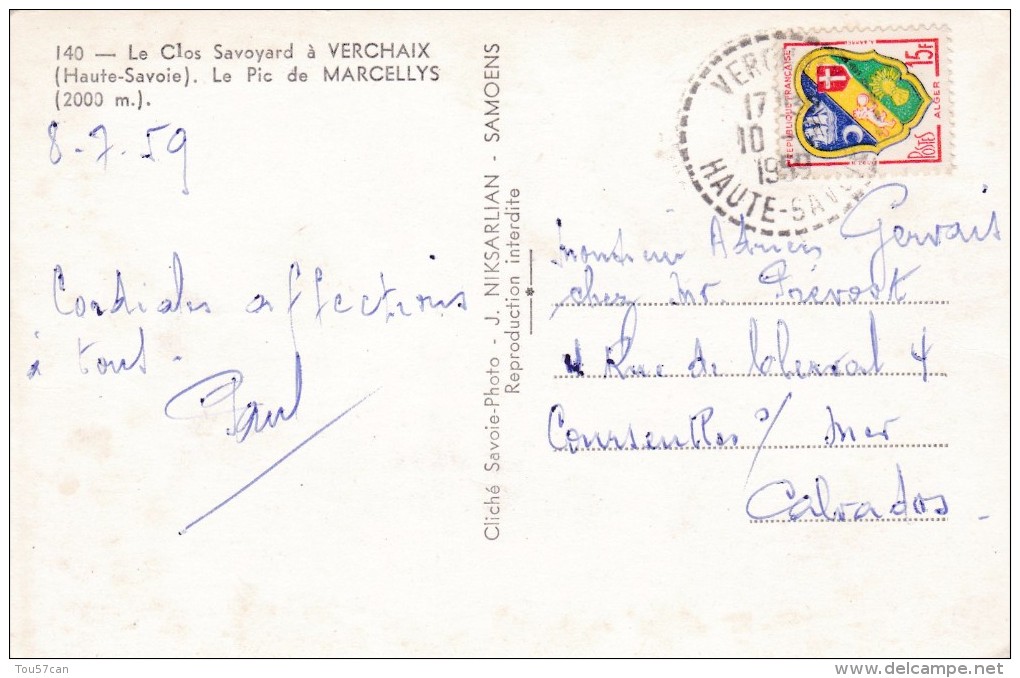 140 — Le Clos Savoyard à VERCHAIX
(Haute-Savoie). Le Pic de MARCELLYS
(2000 m.).
8-7-59
Cordiales affections
à tous.
Paul
Cliché Savoie-Photo - J. NIKSARLIAN - SAMOENS
Reproduction interdite
VERCH
17
10
1959
HAUTE-SAVOIE
REPUBLIQUE FRANÇAISE
15F
ALGER
POSTES
Monsieur Gervais
chez Mr. Prévost
4 Rue de 4
Courseulles s/ mer
Calvados.
Tou57can
www.delcampe.net